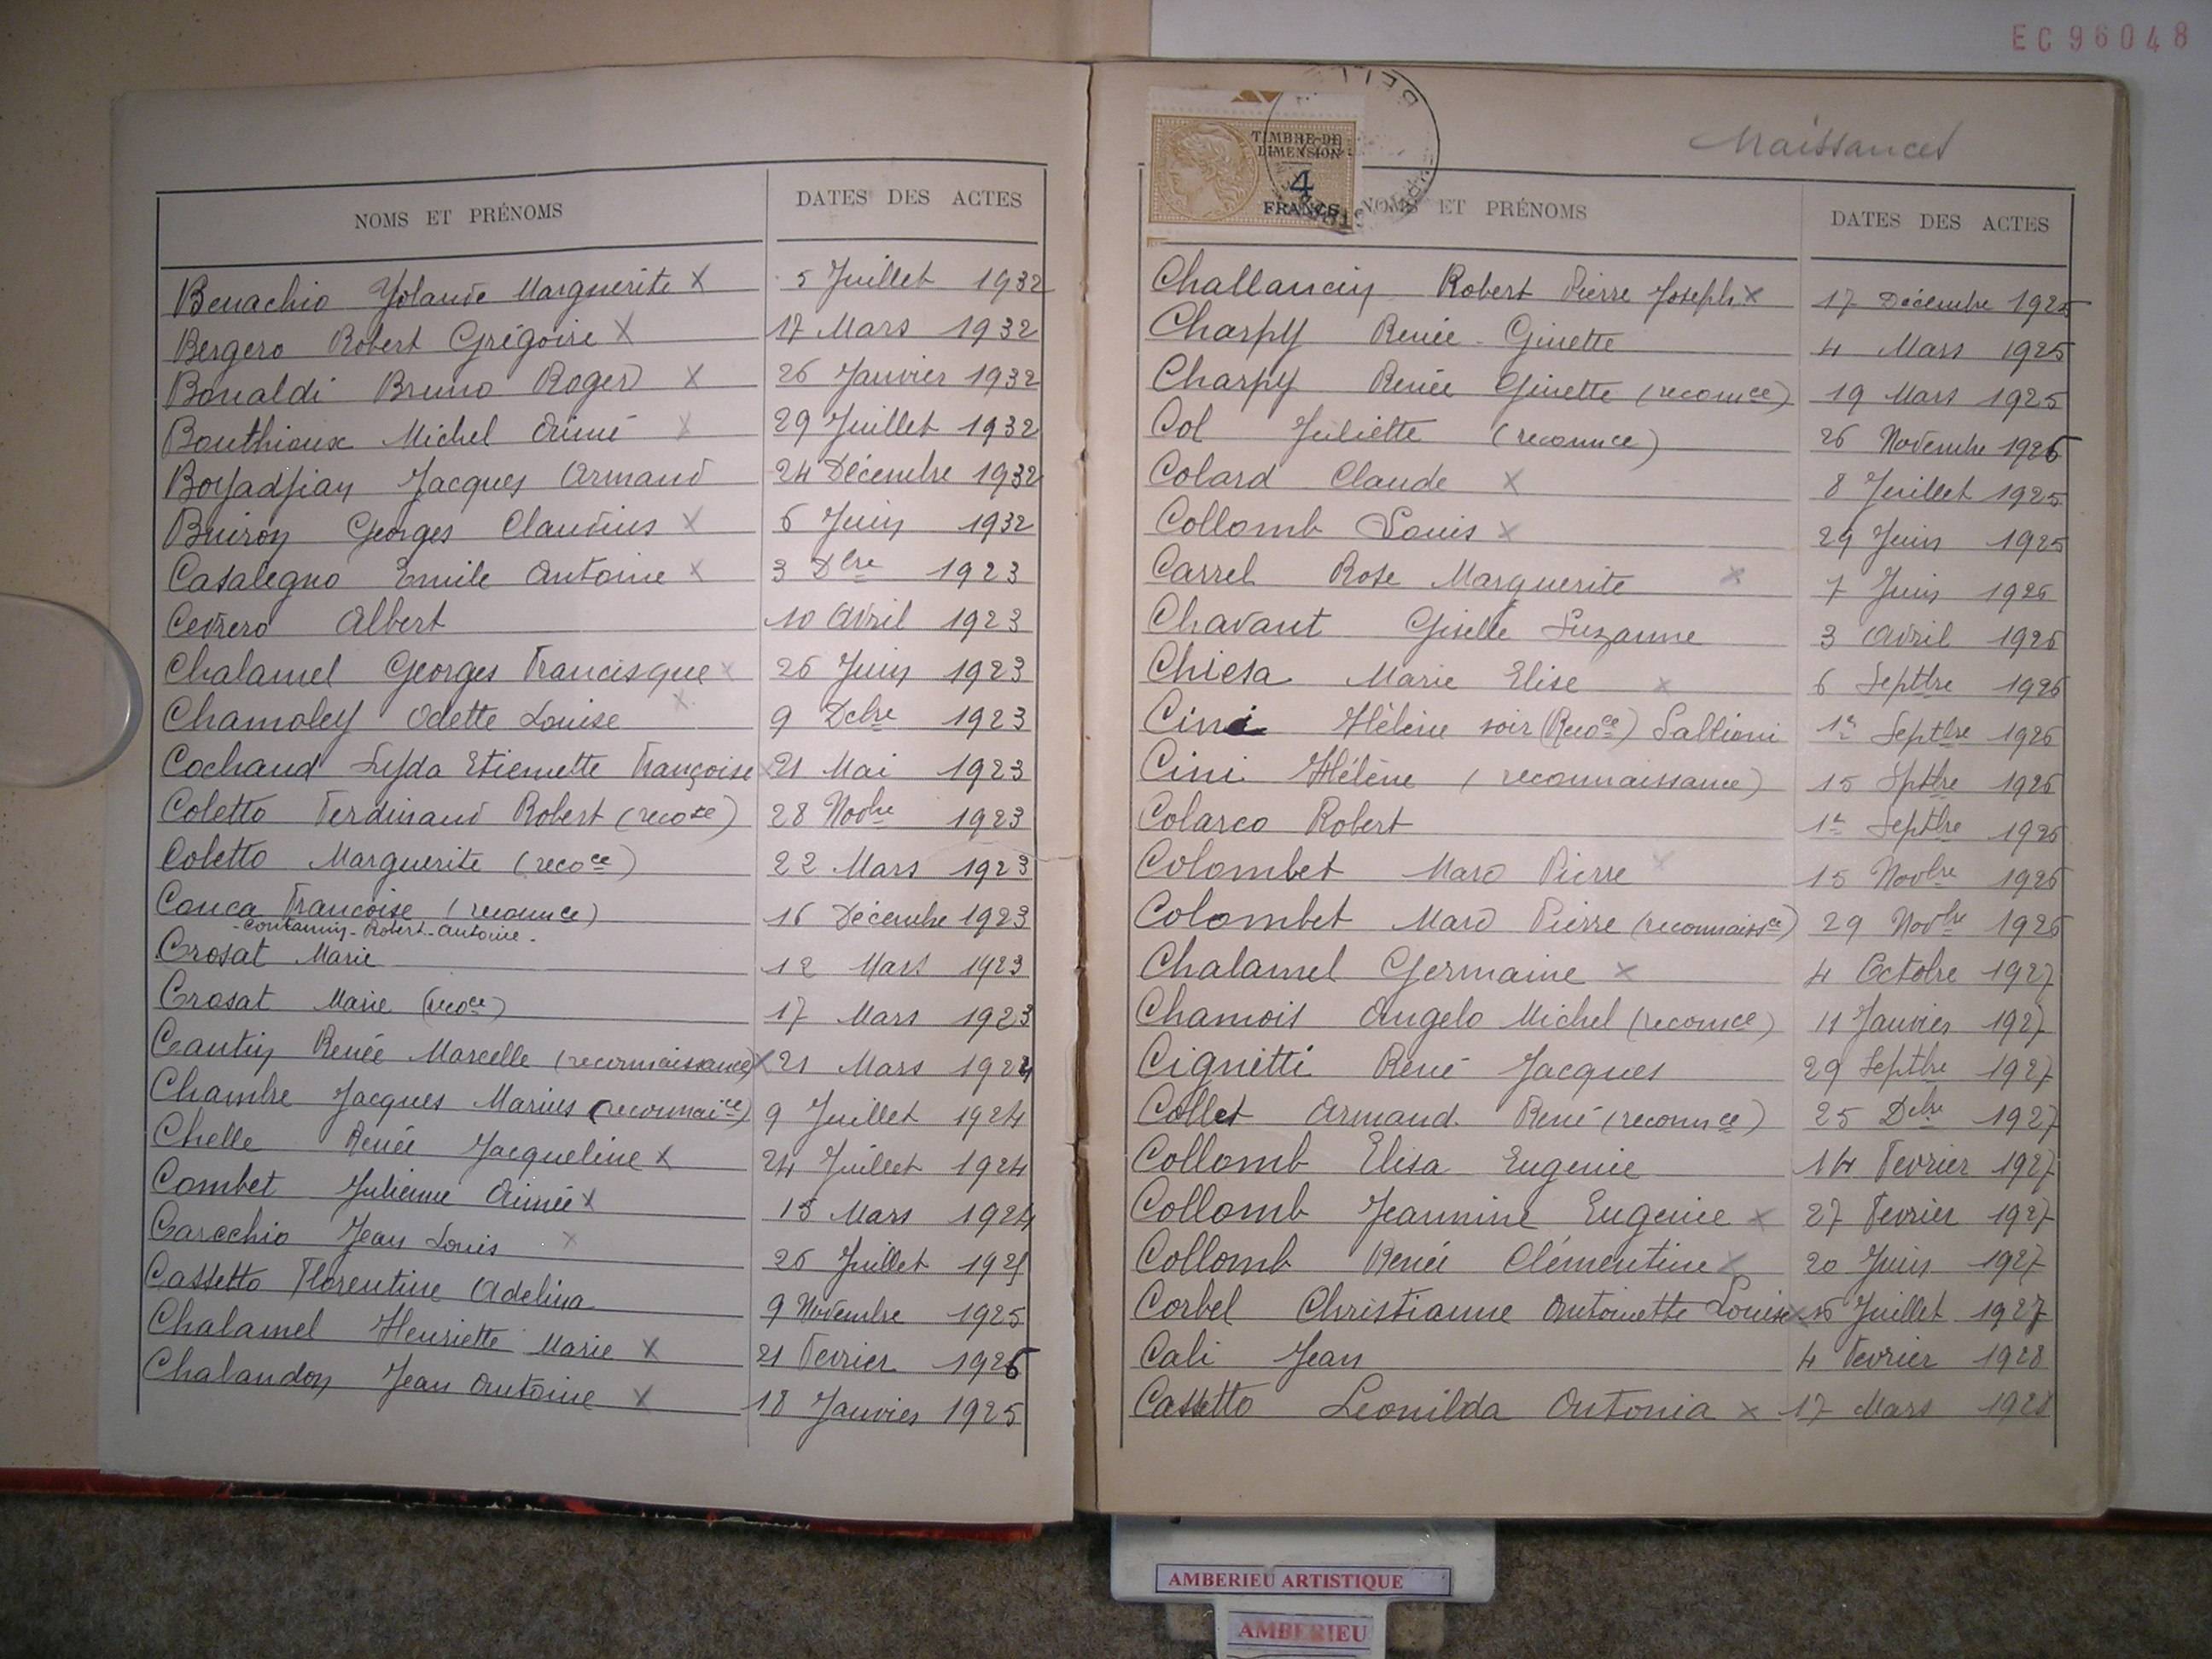 EC96048
NOMS ET PRÉNOMS DATES DES ACTES
Benachio Yolande Marguerite x 5 Juillet 1932
Bergero Robert Grégoire X 17 Mars 1932
Bonaldi Bruno Roger X 26 Janvier 1932
Bouthioux Michel Aimé X 29 Juillet 1932
Boyadjian Jacques Armand 24 Décembre 1932
Buiron Georges Claudius X 6 Juin 1932
Casalegno Emile Antoine X 3 Dbre 1923
Cevrero Albert 10 Avril 1923
Chalamel Georges Francisque x 26 Juin 1923
Chamoley Odette Louise x 9 Dcbre 1923
Cochaud Lyda Etiennette Françoise x 21 Mai 1923
Coletto Ferdinand Robert (recoce) 28 Novbre 1923
Coletto Marguerite (recoce) 22 Mars 1923
Conca Françoise (reconnce) 16 Décembre 1923
- Contamin - Robert - Antoine -
Crosat Marie 12 Mars 1923
Crosat Marie (recoce) 17 Mars 1923
Cantin Renée Marcelle (reconnaissance) x 21 Mars 1924
Chambre Jacques Marius (reconnaice) 9 Juillet 1924
Chelle Renée Jacqueline x 24 Juillet 1924
Combet Julienne Aimée x 15 Mars 1924
Carechio Jean Louis x 26 Juillet 1925
Cassetto Florentine Adelina 9 Novembre 1925
Chalamel Henriette Marie X 21 Fevrier 1925
Chalandon Jean Antoine X 18 Janvier 1925
Naissances
TIMBRE DE
DIMENSION
4
FRANCS
NOMS ET PRÉNOMS DATES DES ACTES
Challancin Robert Pierre Joseph x 17 Décembre 1925
Charpy Renée - Ginette 4 Mars 1925
Charpy Renée Ginette (reconnce) 19 Mars 1925
Col Juliette (reconnce) 26 Novembre 1925
Colard Claude x 8 Juillet 1925
Collomb Louis x 29 Juin 1925
Carrel Rose Marguerite x 7 Juin 1926
Chavant Giselle Suzanne 3 Avril 1926
Chiesa Marie Elise x 6 Septbre 1926
Cini Hélène voir (Recoce) Saltioni 1er Septbre 1926
Cini Hélène (reconnaissance) 15 Sptbre 1926
Colarco Robert 1er Septbre 1926
Colombet Marc Pierre x 15 Novbre 1926
Colombet Marc Pierre (reconnaissce) 29 Novbre 1926
Chalamel Germaine x 4 Octobre 1927
Chamois Angelo Michel (reconnce) 11 Janvier 1927
Cignetti René Jacques 29 Septbre 1927
Collet Armand René (reconnce) 25 Dcbre 1927
Collomb Elisa Eugenie 14 Fevrier 1927
Collomb Jeannine Eugenie x 27 Fevrier 1927
Collomb Renée Clémentine x 20 Juin 1927
Corbel Christianne Antoinette Louise x 15 Juillet 1927
Cali Jean 4 Fevrier 1928
Cassetto Leonilda Antonia x 17 Mars 1928
AMBERIEU ARTISTIQUE
AMBERIEU